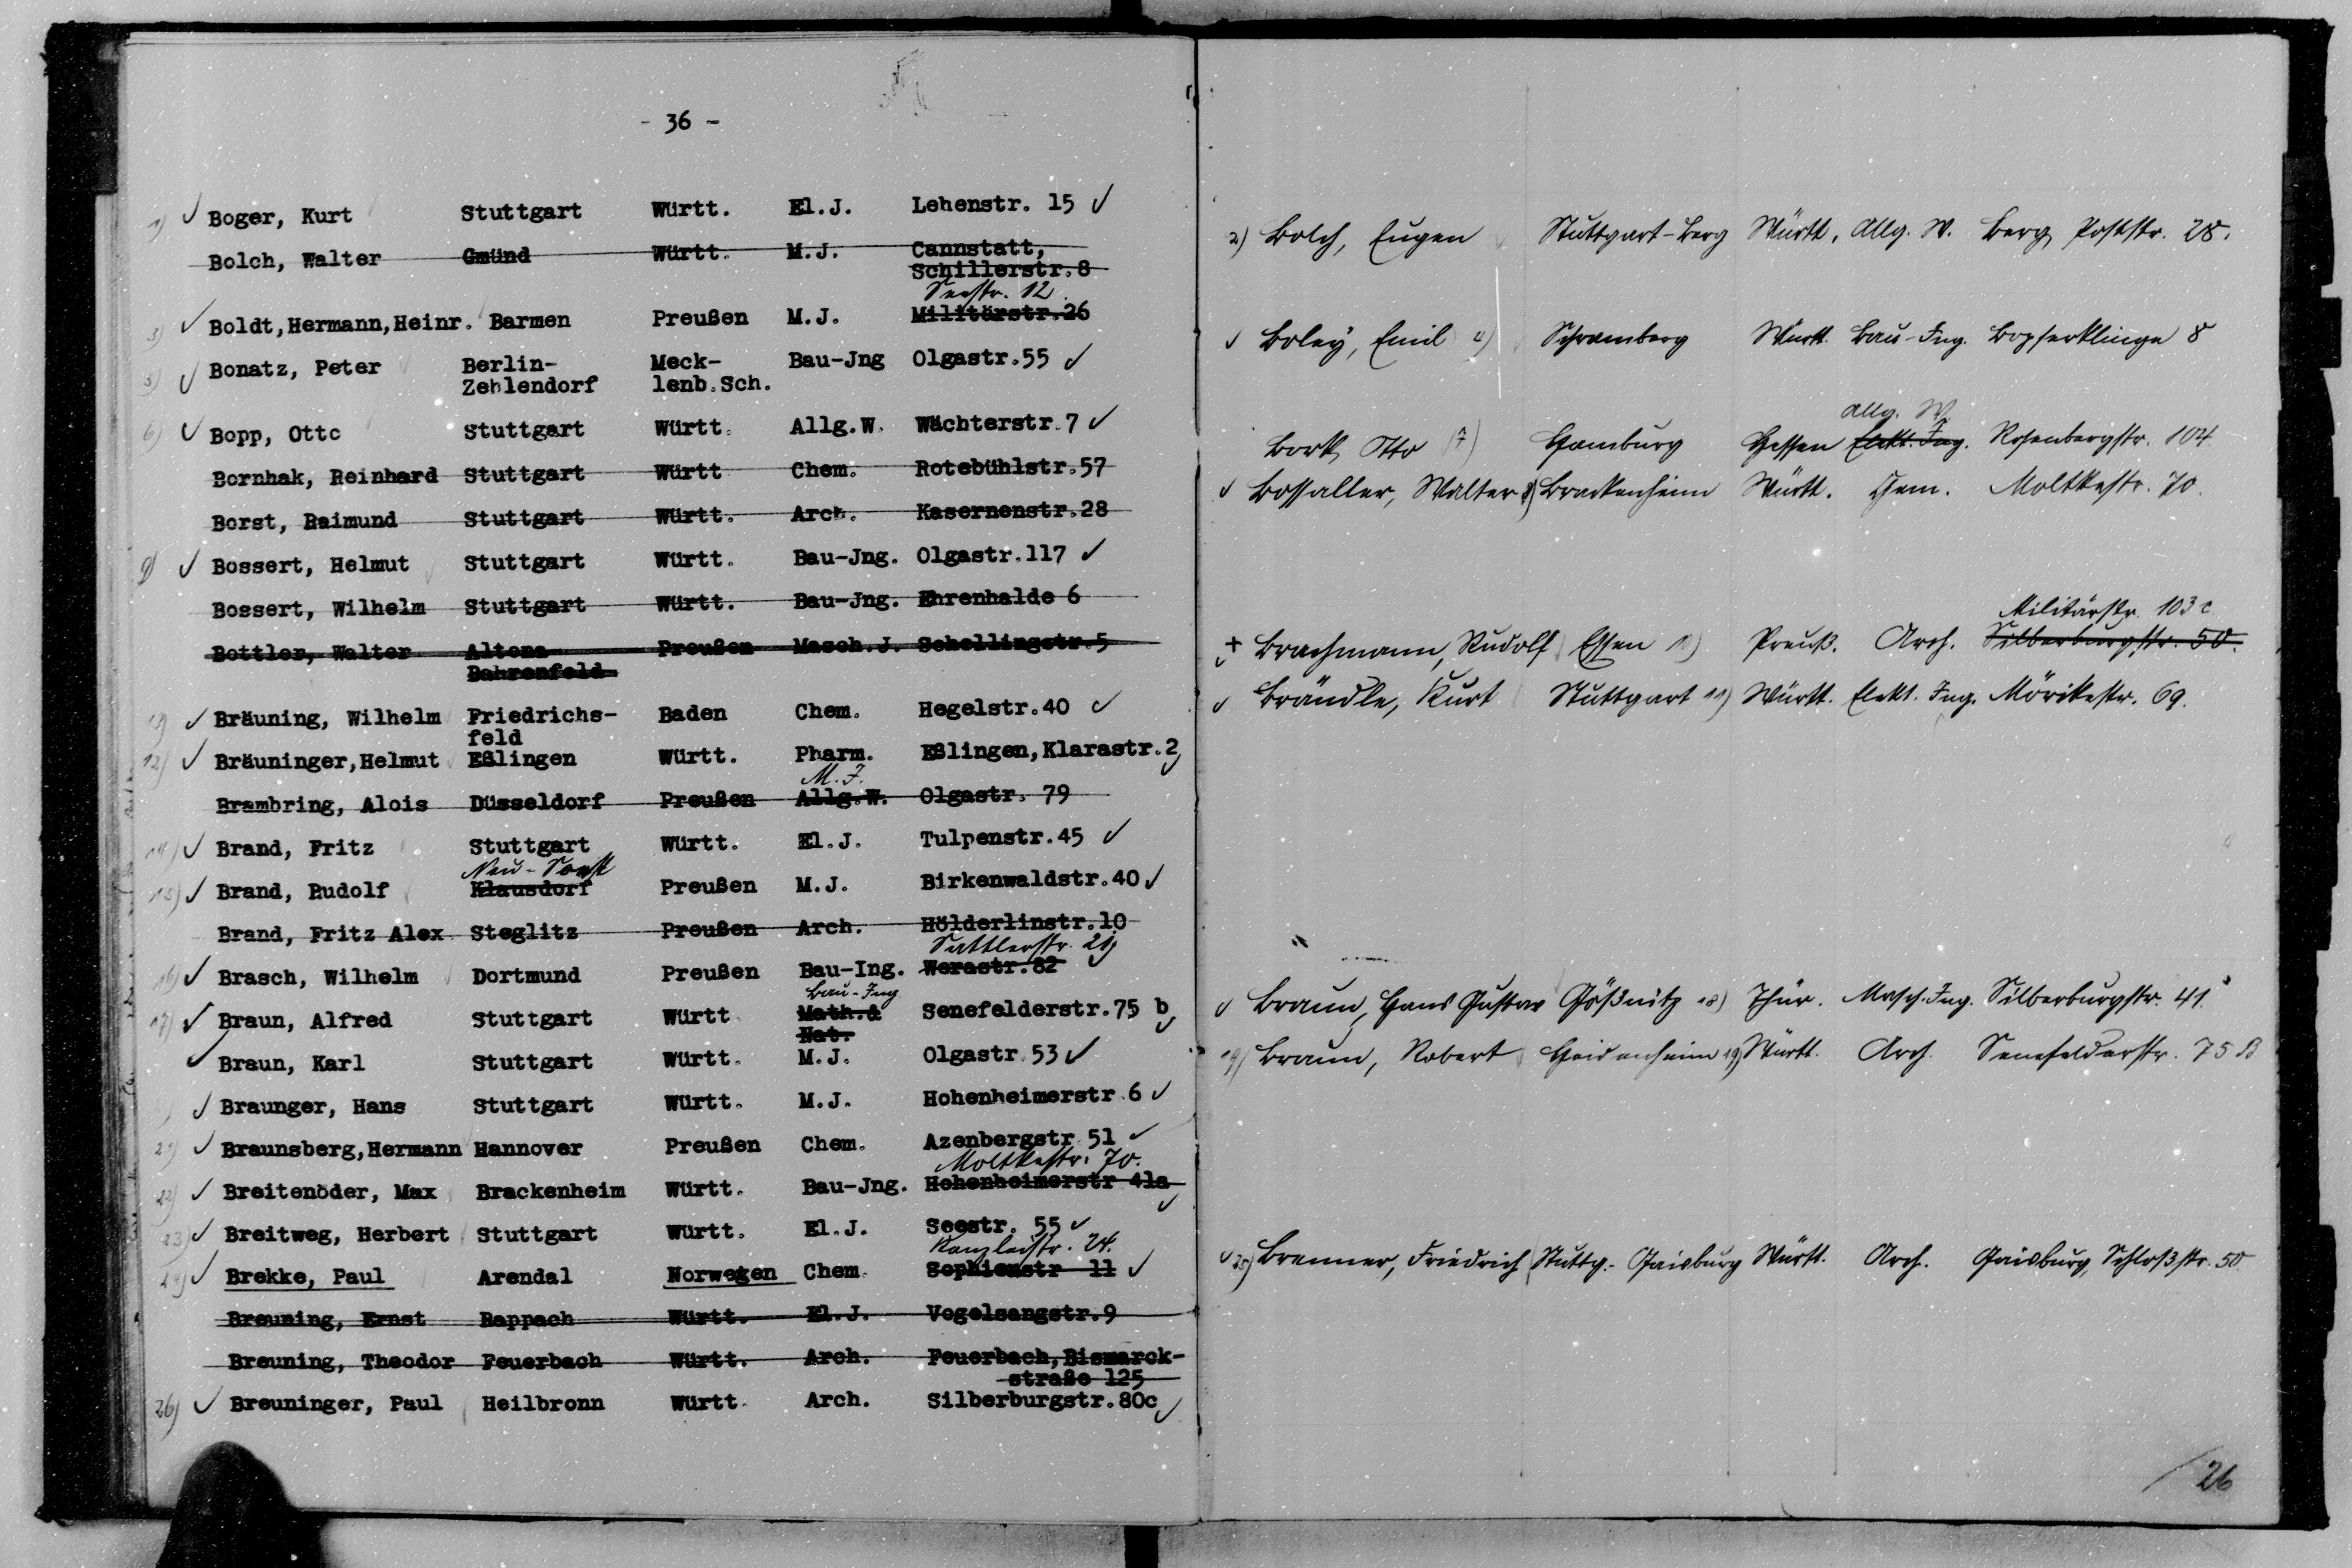 - 36 -
1) ✓ Boger, Kurt Stuttgart Württ. El.J. Lehenstr. 15 ✓
Bolch, Walter Gmünd Württ. M.J. Cannstatt,
Schillerstr.8
Seestr. 12.
3) ✓ Boldt,Hermann,Heinr. Barmen Preußen M.J. Militärstr.26
5) ✓ Bonatz, Peter Berlin- Meck- Bau-Jng Olgastr.55 ✓
Zehlendorf lenb.Sch.
6) ✓ Bopp, Otto Stuttgart Württ. Allg.W. Wächterstr.7 ✓
Bornhak, Reinhard Stuttgart Württ Chem. Rotebühlstr.57
Borst, Raimund Stuttgart Württ. Arch. Kasernenstr.28
9) ✓ Bossert, Helmut Stuttgart Württ. Bau-Jng. Olgastr.117 ✓
Bossert, Wilhelm Stuttgart Württ. Bau-Jng. Ehrenhalde 6
Bottler, Walter Altona Preußen Masch.J. Schellingstr.5
Bahrenfeld
13) ✓ Bräuning, Wilhelm Friedrichs- Baden Chem. Hegelstr.40 ✓
feld
12) ✓ Bräuninger,Helmut Eßlingen Württ. Pharm. Eßlingen,Klarastr.2 ✓
M.J.
Brambring, Alois Düsseldorf Preußen Allg.W. Olgastr. 79
14) ✓ Brand, Fritz Stuttgart Württ. El.J. Tulpenstr.45 ✓
Neu-
15) ✓ Brand, Rudolf Klausdorf Preußen M.J. Birkenwaldstr.40 ✓
Brand, Fritz Alex Steglitz Preußen Arch. Hölderlinstr.10
Sattlerstr. 21
16) ✓ Brasch, Wilhelm Dortmund Preußen Bau-Ing. Werastr.82 ✓
Bau-Ing
17) ✓ Braun, Alfred Stuttgart Württ Math.& Senefelderstr.75 b ✓
Nat.
✓ Braun, Karl Stuttgart Württ. M.J. Olgastr.53 ✓
✓ Braunger, Hans Stuttgart Württ. M.J. Hohenheimerstr.6 ✓
21) ✓ Braunsberg,Hermann Hannover Preußen Chem. Azenbergstr.51 ✓
Moltkestr. 70.
22) ✓ Breitenöder, Max Brackenheim Württ. Bau-Jng. Hohenheimerstr 41a ✓
23) ✓ Breitweg, Herbert Stuttgart Württ. El.J. Seestr. 55 ✓
Kanzleistr. 24.
24) ✓ Brekke, Paul Arendal Norwegen Chem. Sophienstr 11 ✓
Breuning, Ernst Rappach Württ. El.J. Vogelsangstr.9
Breuning, Theodor Feuerbach Württ. Arch. Feuerbach,Bismarck-
straße 125
26) ✓ Breuninger, Paul Heilbronn Württ. Arch. Silberburgstr.80c ✓
2) Bolch, Eugen Stuttgart-Berg Württ. Allg. W. Berg, Poststr. 28.
✓ Boley, Emil 4) Schramberg Württ. Bau-Ing. Bopserklinge 8
Allg. W.
Bork, Otto 7) Homburg Hessen Elekt. Ing. Rosenbergstr. 104
✓ Bossaller, Walter 8) Brackenheim Württ. Chem. Moltkestr. 70.
Militärstr. 103c
+ Brachmann, Rudolf Essen 10) Preuß. Arch. Silberburgstr. 50.
✓ Brändle, Kurt Stuttgart 11) Württ. Elekt. Ing. Mörikestr. 69.
✓ Braun, Hans Gustav Gößnitz 18) Thür. Masch.-Ing. Silberburgstr. 41.
19) Braun, Robert Heidenheim 19) Württ. Arch. Senefelderstr. 75 B
✓ 25) Brenner, Friedrich Stuttg.-Gaisburg Württ. Arch. Gaisburg, Schloßstr. 50
/ 26